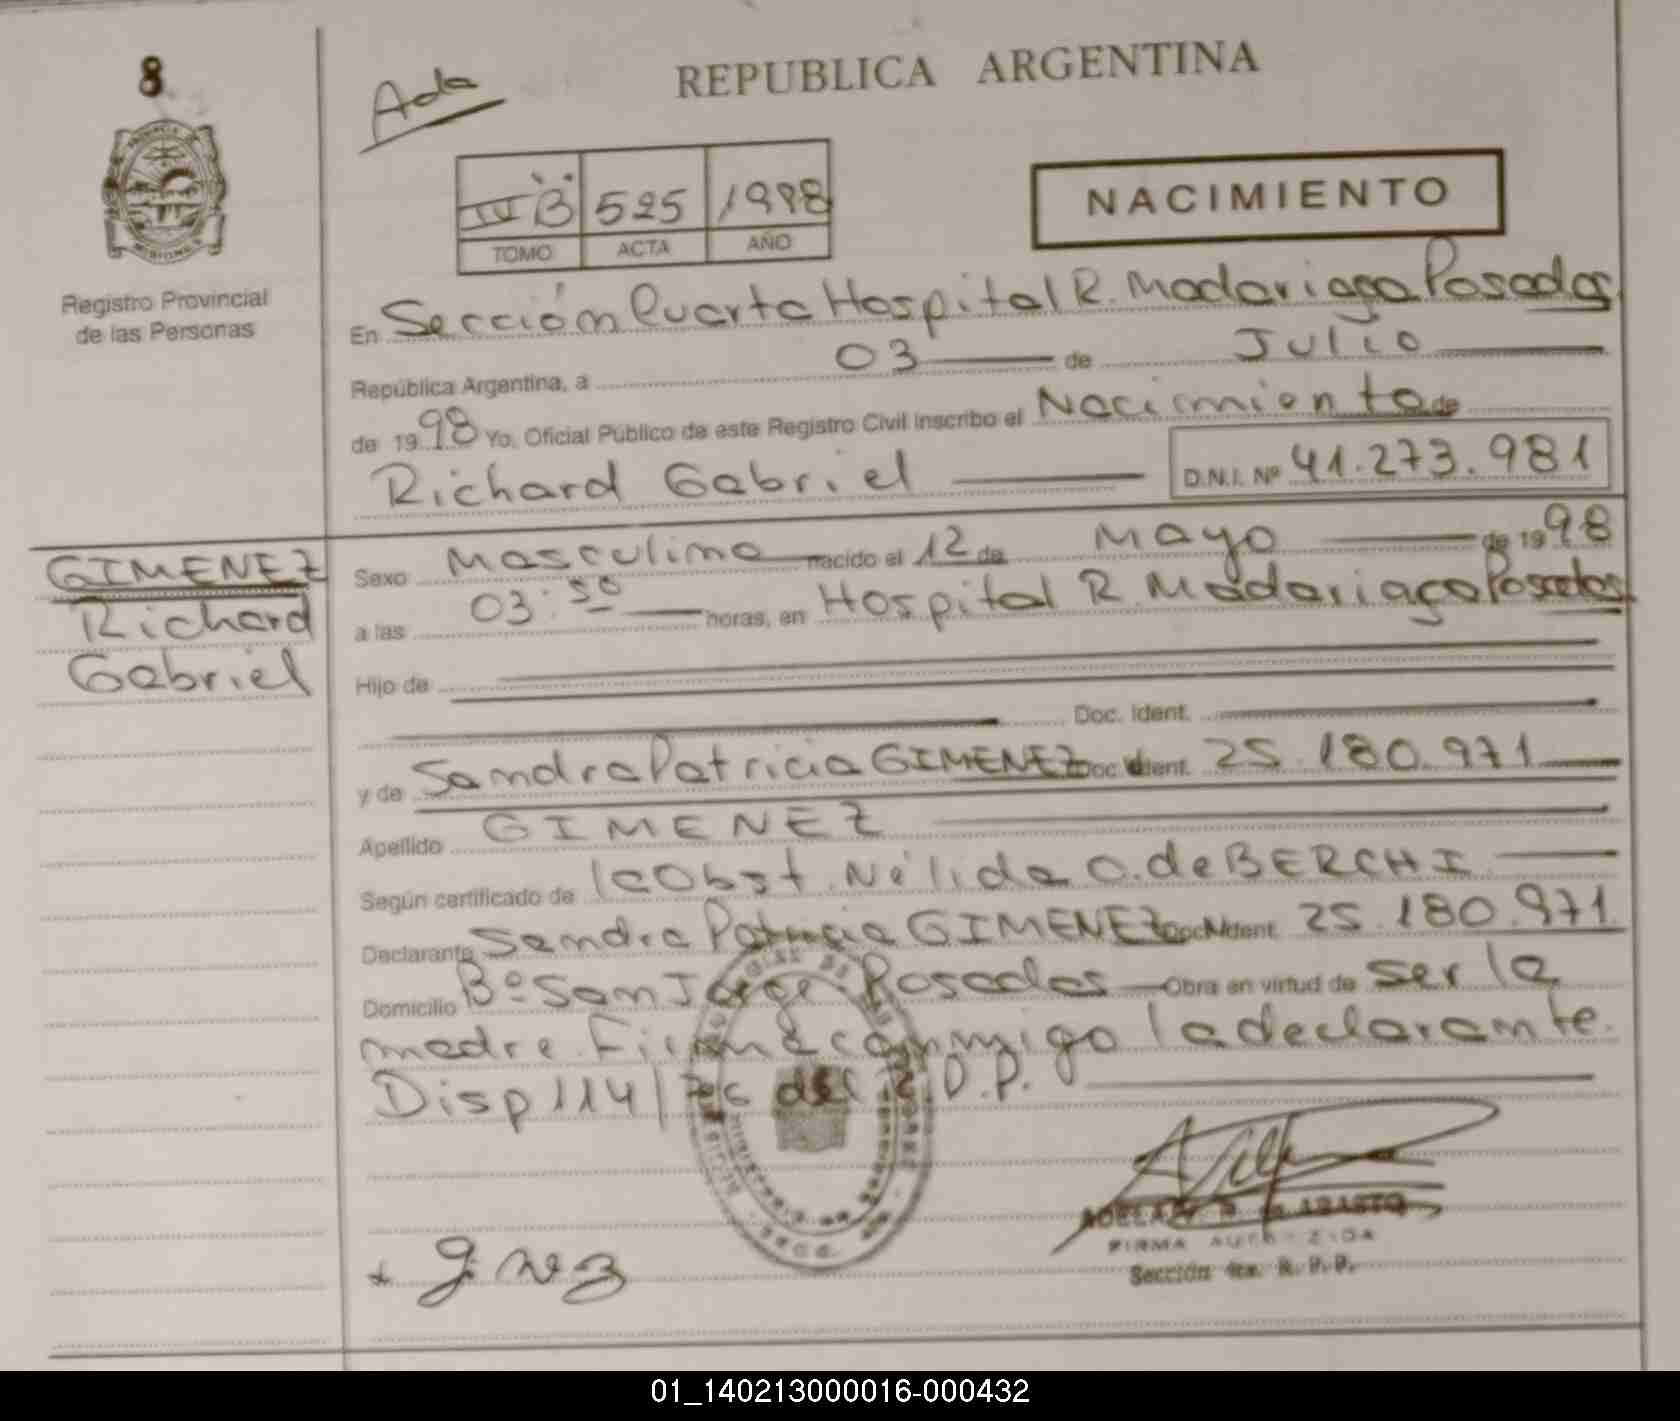 8
Ada
REPUBLICA ARGENTINA
IV B 525 1998
TOMO ACTA AÑO
NACIMIENTO
Registro Provincial
de las Personas
En Sección Cuarta Hospital R. Madariaga Posadas
República Argentina, a 03 de Julio
de 1998 Yo, Oficial Público de este Registro Civil inscribo el Nacimiento de
Richard Gabriel D.N.I. Nº 41.273.981
GIMENEZ
Richard
Gabriel
Sexo Masculino nacido el 12 de Mayo de 1998
a las 03:50 horas, en Hospital R. Madariaga Posadas
Hijo de
Doc. Ident.
y de Sandra Patricia GIMENEZ Doc. Ident. 25.180.971
Apellido GIMENEZ
Según certificado de la Obst. Nélida O. de BERCHI
Declarante Sandra Patricia GIMENEZ Doc. Ident. 25.180.971
Domicilio Bº San Jorge Posadas Obra en virtud de ser la
madre. Firma conmigo la declarante.
Disp 114/76 del R.D.P.
ADELA R. de ABASTO
FIRMA AUTORIZADA
Sección 4ta. R. P. P.
01_140213000016-000432